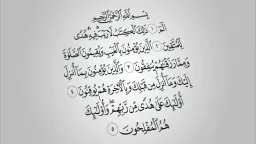 بِسْمِ اللَّهِ الرَّحْمَٰنِ الرَّحِيمِ
الم ١ ذَٰلِكَ الْكِتَابُ لَا رَيْبَ فِيهِ هُدًى
لِّلْمُتَّقِينَ ٢ الَّذِينَ يُؤْمِنُونَ بِالْغَيْبِ وَيُقِيمُونَ الصَّلَوٰةَ
وَمِمَّا رَزَقْنَٰهُمْ يُنفِقُونَ ٣ وَالَّذِينَ يُؤْمِنُونَ بِمَا أُنزِلَ
إِلَيْكَ وَمَا أُنزِلَ مِن قَبْلِكَ وَبِالْآخِرَةِ هُمْ يُوقِنُونَ ٤
أُولَٰئِكَ عَلَىٰ هُدًى مِّن رَّبِّهِمْ وَأُولَٰئِكَ
هُمُ الْمُفْلِحُونَ ٥